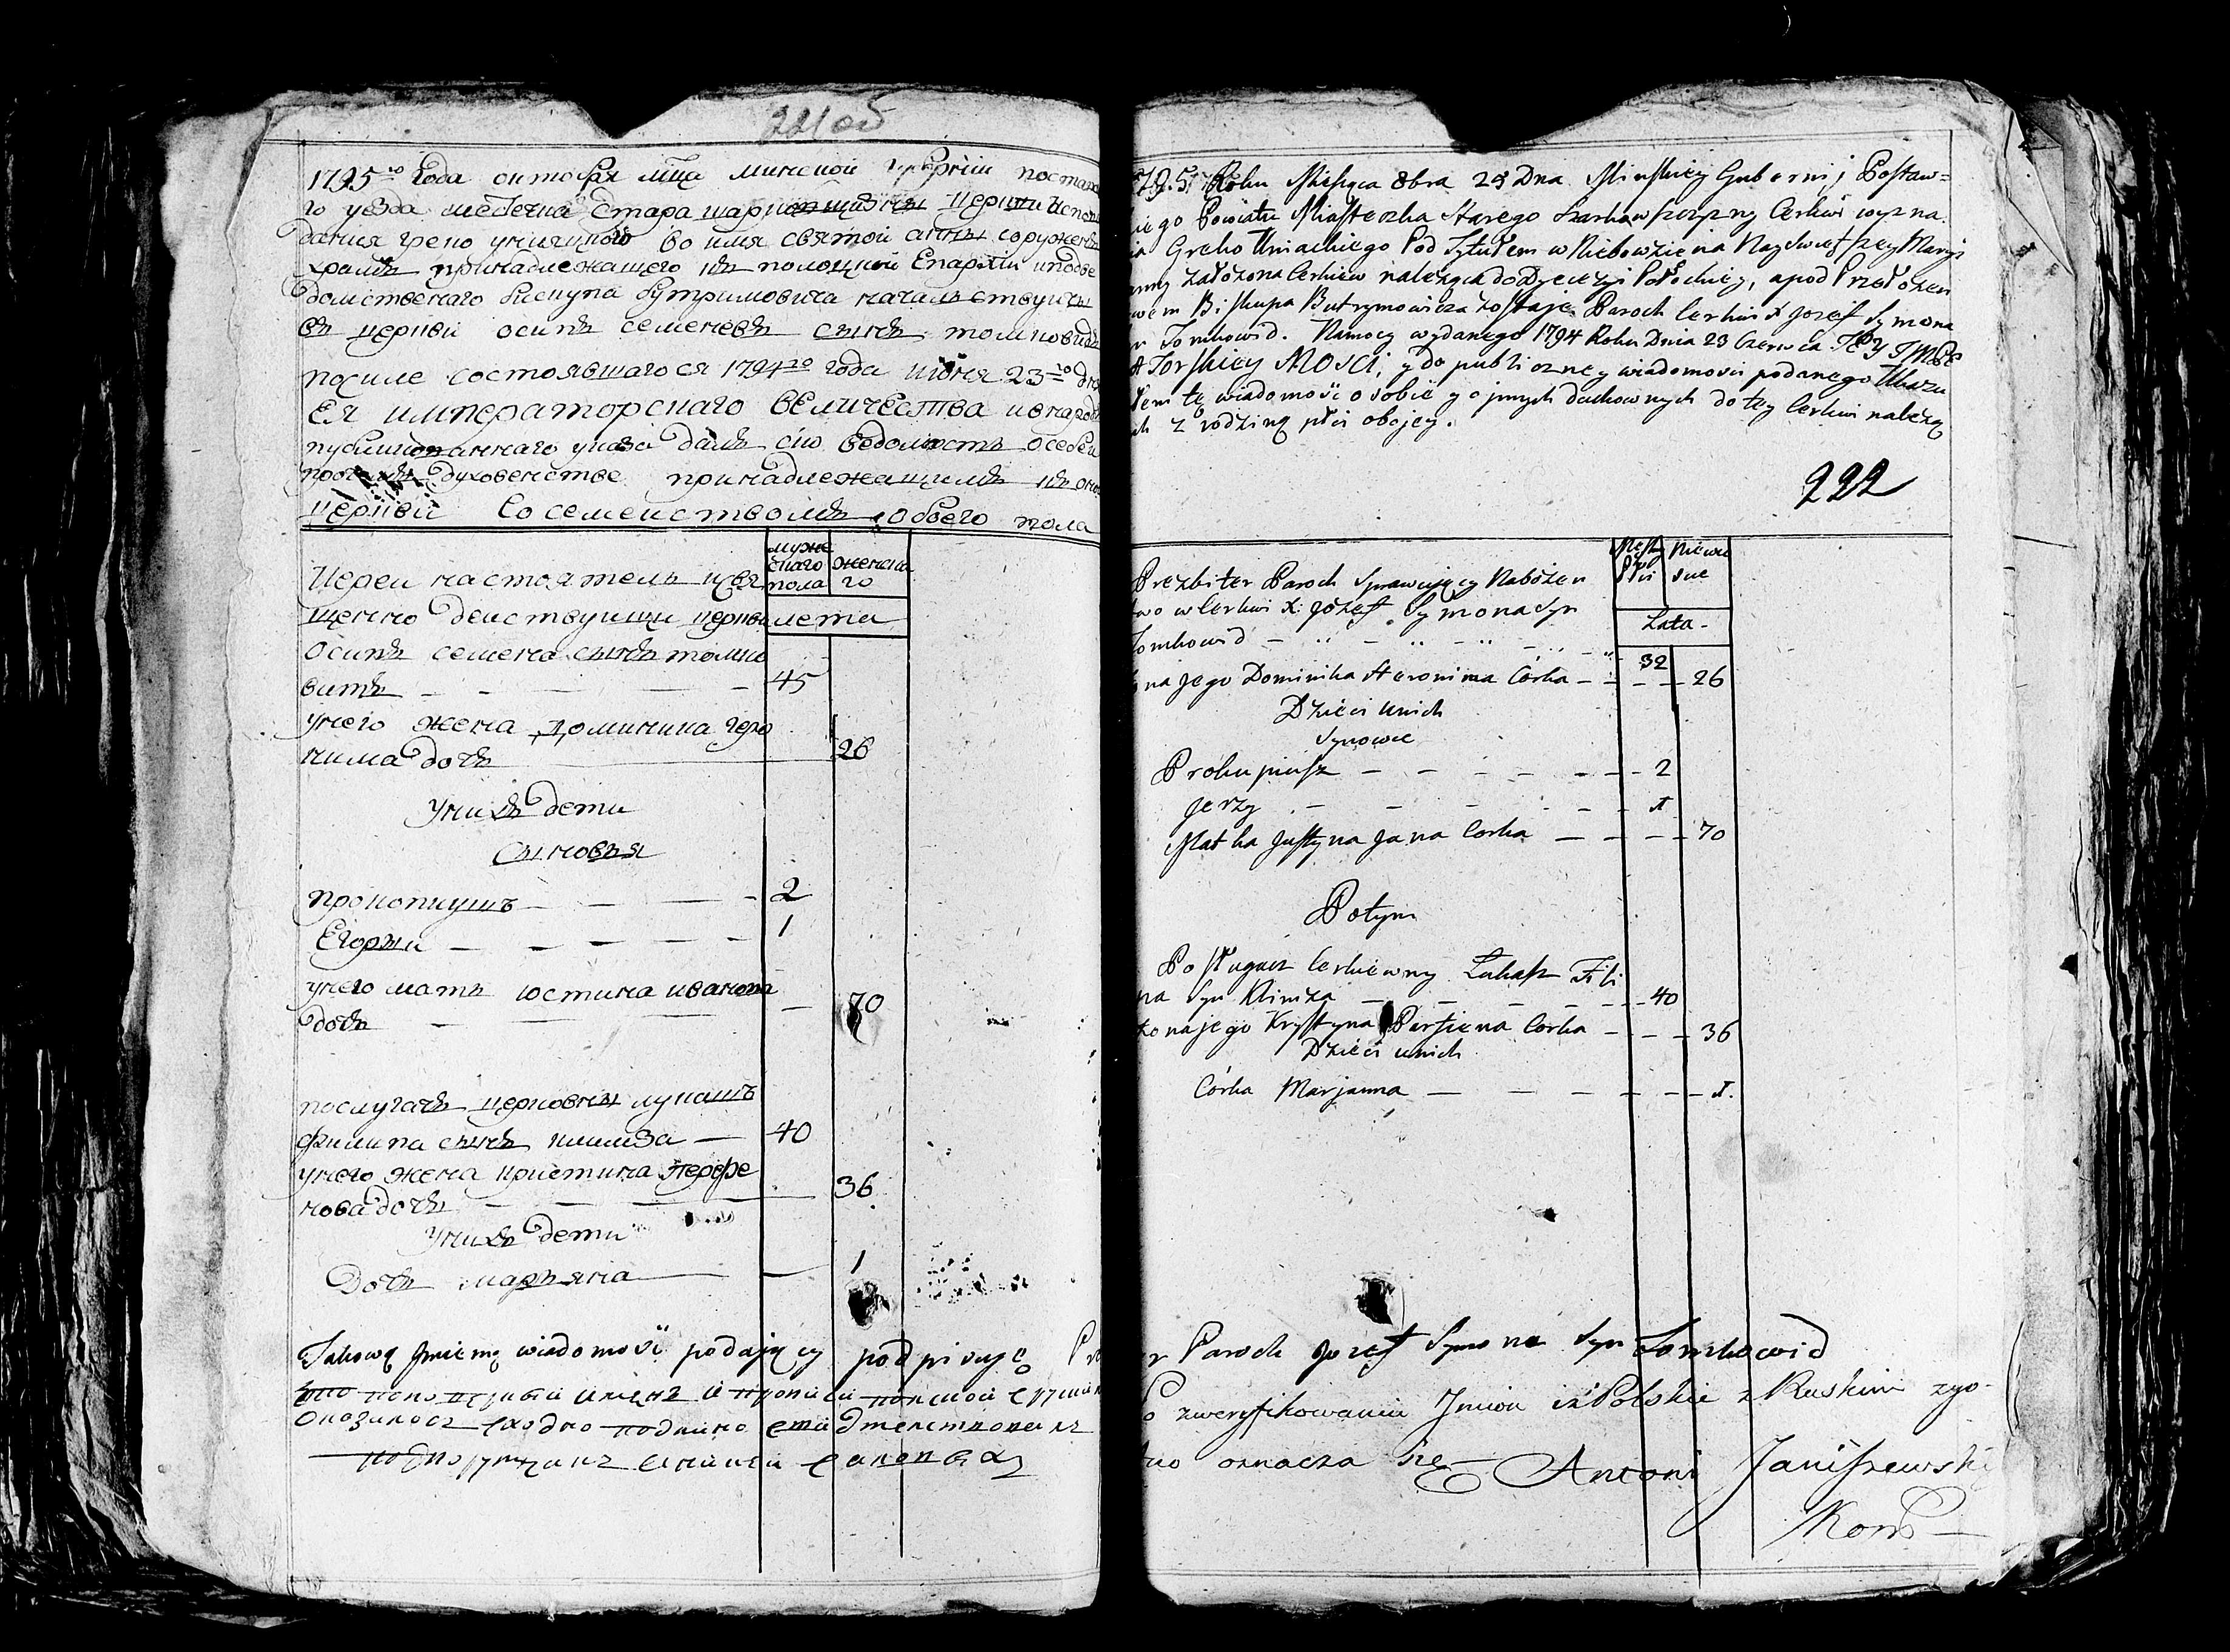 221 об
1795го Года октобря мца минской губернии постав
го уезда местечка Стара шарковщизны церкви испове
дания греко униацкого во имя святой анны сооруженно
храмъ принадлежащего къ полоцкой Епархии иподве
домственаго бискупа бутримовича началствующъ
въ церкви осипъ семеневъ сынъ томковидъ
посиле состоявшагося 1794го года июня 23го дня
Ея императорскаго величества ивнарод
публикованнаго указа далъ сию ведомость о себе и
духовенстве принадлежащимъ къ оно
церкви Со семействомъ обоего пола
Иереи настоятель исвя
щенно деиствующи церкви
Осипъ семена сынъ томко
витъ
унего жена доминика геро
нима дочь
унихъ дети
сыновья
прокопиушъ
Егоржи
унего мать юстина иванова
дочь
послугачъ церковны лукашъ
филипа сынъ климза
унего жена кристина перфе
нова дочь
унихъ дети
дочь марьяна
муже
скаго
пола
женска
го
лета
45
26
2
1
70
40
36
1
Takową Jmienną wiadomość podający podpisuję
795 Roku Miesięca 8bra 29 Dna Minskiey Gubernij Postaw=
iego Powiatu Miasteczka Starego Szarkowszczyzny Cerkwi wyzna
ia Greko Uniackiego Pod Tytułem w Niebowzięcia Nayswiętszey Maryi
anny założona Cerkiew należąca do Dyecezyi Połockiey, a pod Przełożen
wem Biskupa Butrymowicza zostaje. Paroch Cerkwi X Jozef Symona
n Tomkowid. Namocy wydanego 1794 Roku Dnia 23 Czerwca
Mości, y do publiczney wiadomości podanego Ukazu
łem tę wiadomość o sobie y o jnnych duchownych do tey Cerkwi należą
ch z rodziną płci obojey.
222
Prezbiter Paroch Sprawujący Nabożen
two w Cerkwi X: Józef Symona Syn
Tomkowid
Męsk
Płci
Niewie
scie
Lata
32
ona jego Dominika Heronima Córka 26
Dzieci Unich
Synowie
Prokupiusz 2
Jerzy 1
Matka Justyna Jana Corka 70
Potym
Posługacz Cerkiewny Łukasz Fili
pa Syn Klimza 40
Zona jego Krystyna Perfiena Corka 36
Dzieci unich
Córka Marjanna 1.
r Paroch Jozef Symona Syn Tomkowid
o zweryfikowaniu Jmion iż Polskie z Ruskim zgo-
no oznacza się Antoni Janiszewski